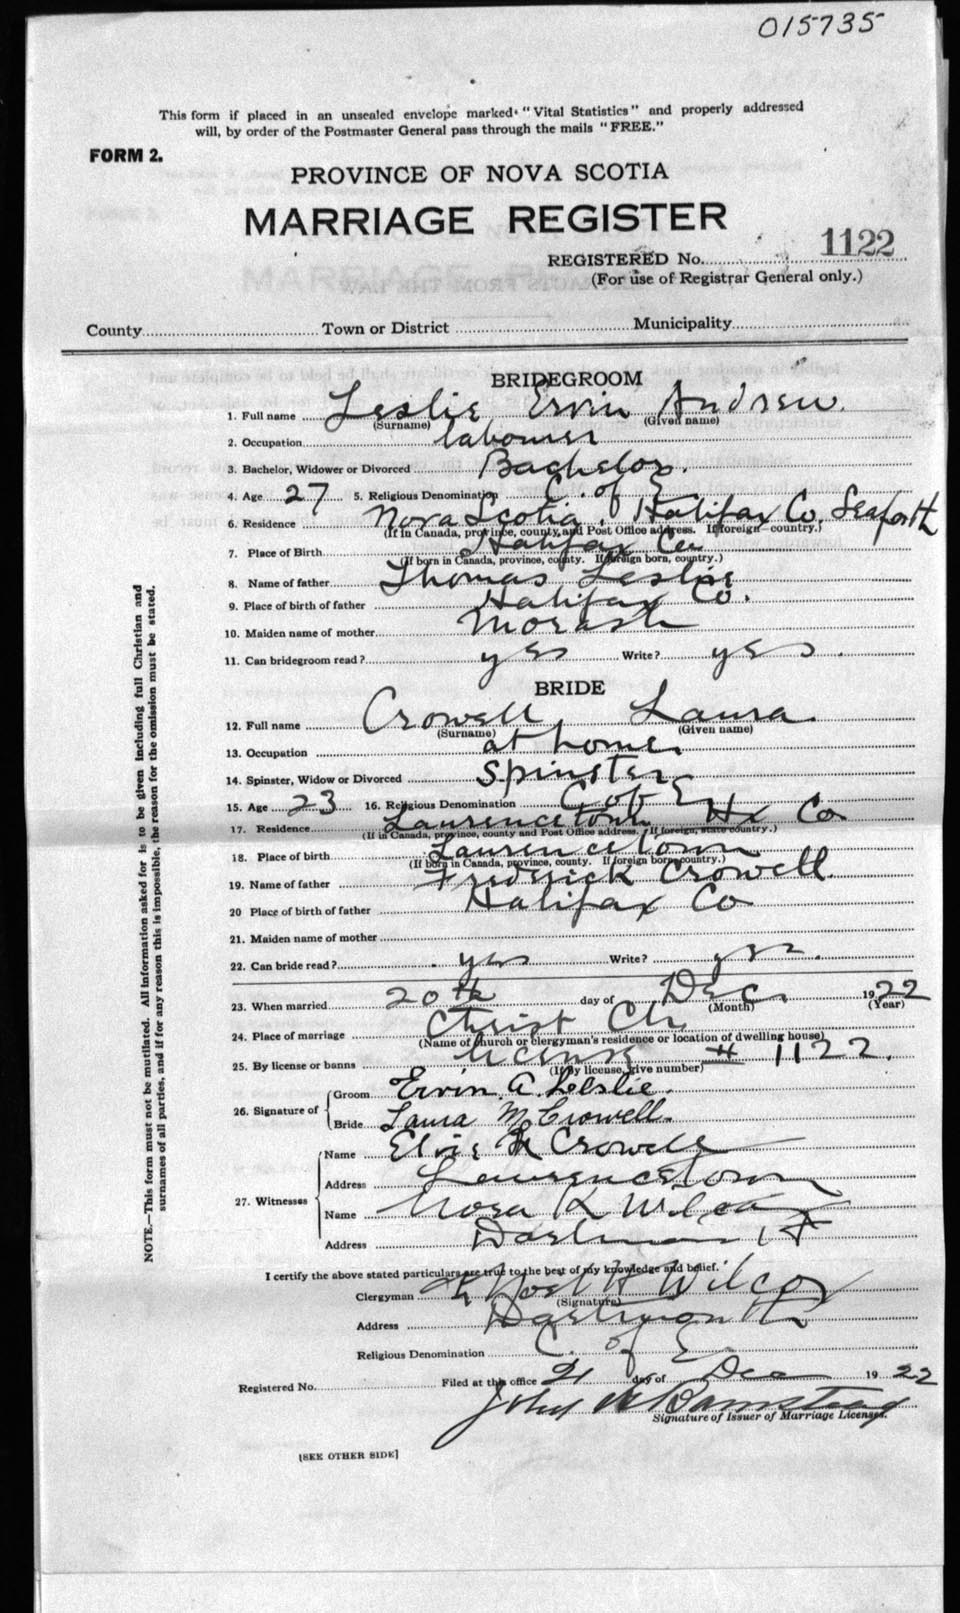 015735
This form if placed in an unsealed envelope marked "Vital Statistics" and properly addressed
will, by order of the Postmaster General pass through the mails "FREE."
FORM 2.
PROVINCE OF NOVA SCOTIA
MARRIAGE REGISTER
REGISTERED No. 1122
(For use of Registrar General only.)
County Town or District Municipality
BRIDEGROOM
1. Full name Leslie Ervin Andrew.
(Surname) (Given name)
2. Occupation labourer
3. Bachelor, Widower or Divorced Bachelor.
4. Age 27 5. Religious Denomination C. of E
6. Residence Nova Scotia, Halifax Co. Seaforth
(If in Canada, province, county, and Post Office address. If foreign country.)
7. Place of Birth Halifax Co
(If born in Canada, province, county. If foreign born, country.)
8. Name of father Thomas Leslie
9. Place of birth of father Halifax Co.
10. Maiden name of mother Morash
11. Can bridegroom read? yes Write? yes.
BRIDE
12. Full name Crowell Laura
(Surname) (Given name)
13. Occupation at home.
14. Spinster, Widow or Divorced Spinster
15. Age 23 16. Religious Denomination C of E
17. Residence Lawrencetown Hx Co
(If in Canada, province, county and Post Office address. If foreign, state country.)
18. Place of birth Lawrencetown
(If born in Canada, province, county. If foreign born, country.)
19. Name of father Frederick Crowell.
20 Place of birth of father Halifax Co
21. Maiden name of mother
22. Can bride read? yes Write? yes.
23. When married 20th day of Dec. 1922
(Month) (Year)
24. Place of marriage Christ Ch.
(Name of church or clergyman's residence or location of dwelling house)
25. By license or banns license # 1122.
(If by license, give number)
26. Signature of Groom Ervin A. Leslie.
Bride Laura M Crowell.
27. Witnesses Name Crowell
Address Lawrencetown
Name Nora K Wilcox
Address Dartmouth
I certify the above stated particulars are true to the best of my knowledge and belief.
Clergyman Noel H Wilcox
(Signature)
Address Dartmouth
Religious Denomination C. of E.
Registered No. Filed at this office 21 day of Dec 1922
John
Signature of Issuer of Marriage Licenses.
[SEE OTHER SIDE]
NOTE.—This form must not be mutilated. All information asked for is to be given including full Christian and
surnames of all parties, and if for any reason this is impossible, the reason for the omission must be stated.